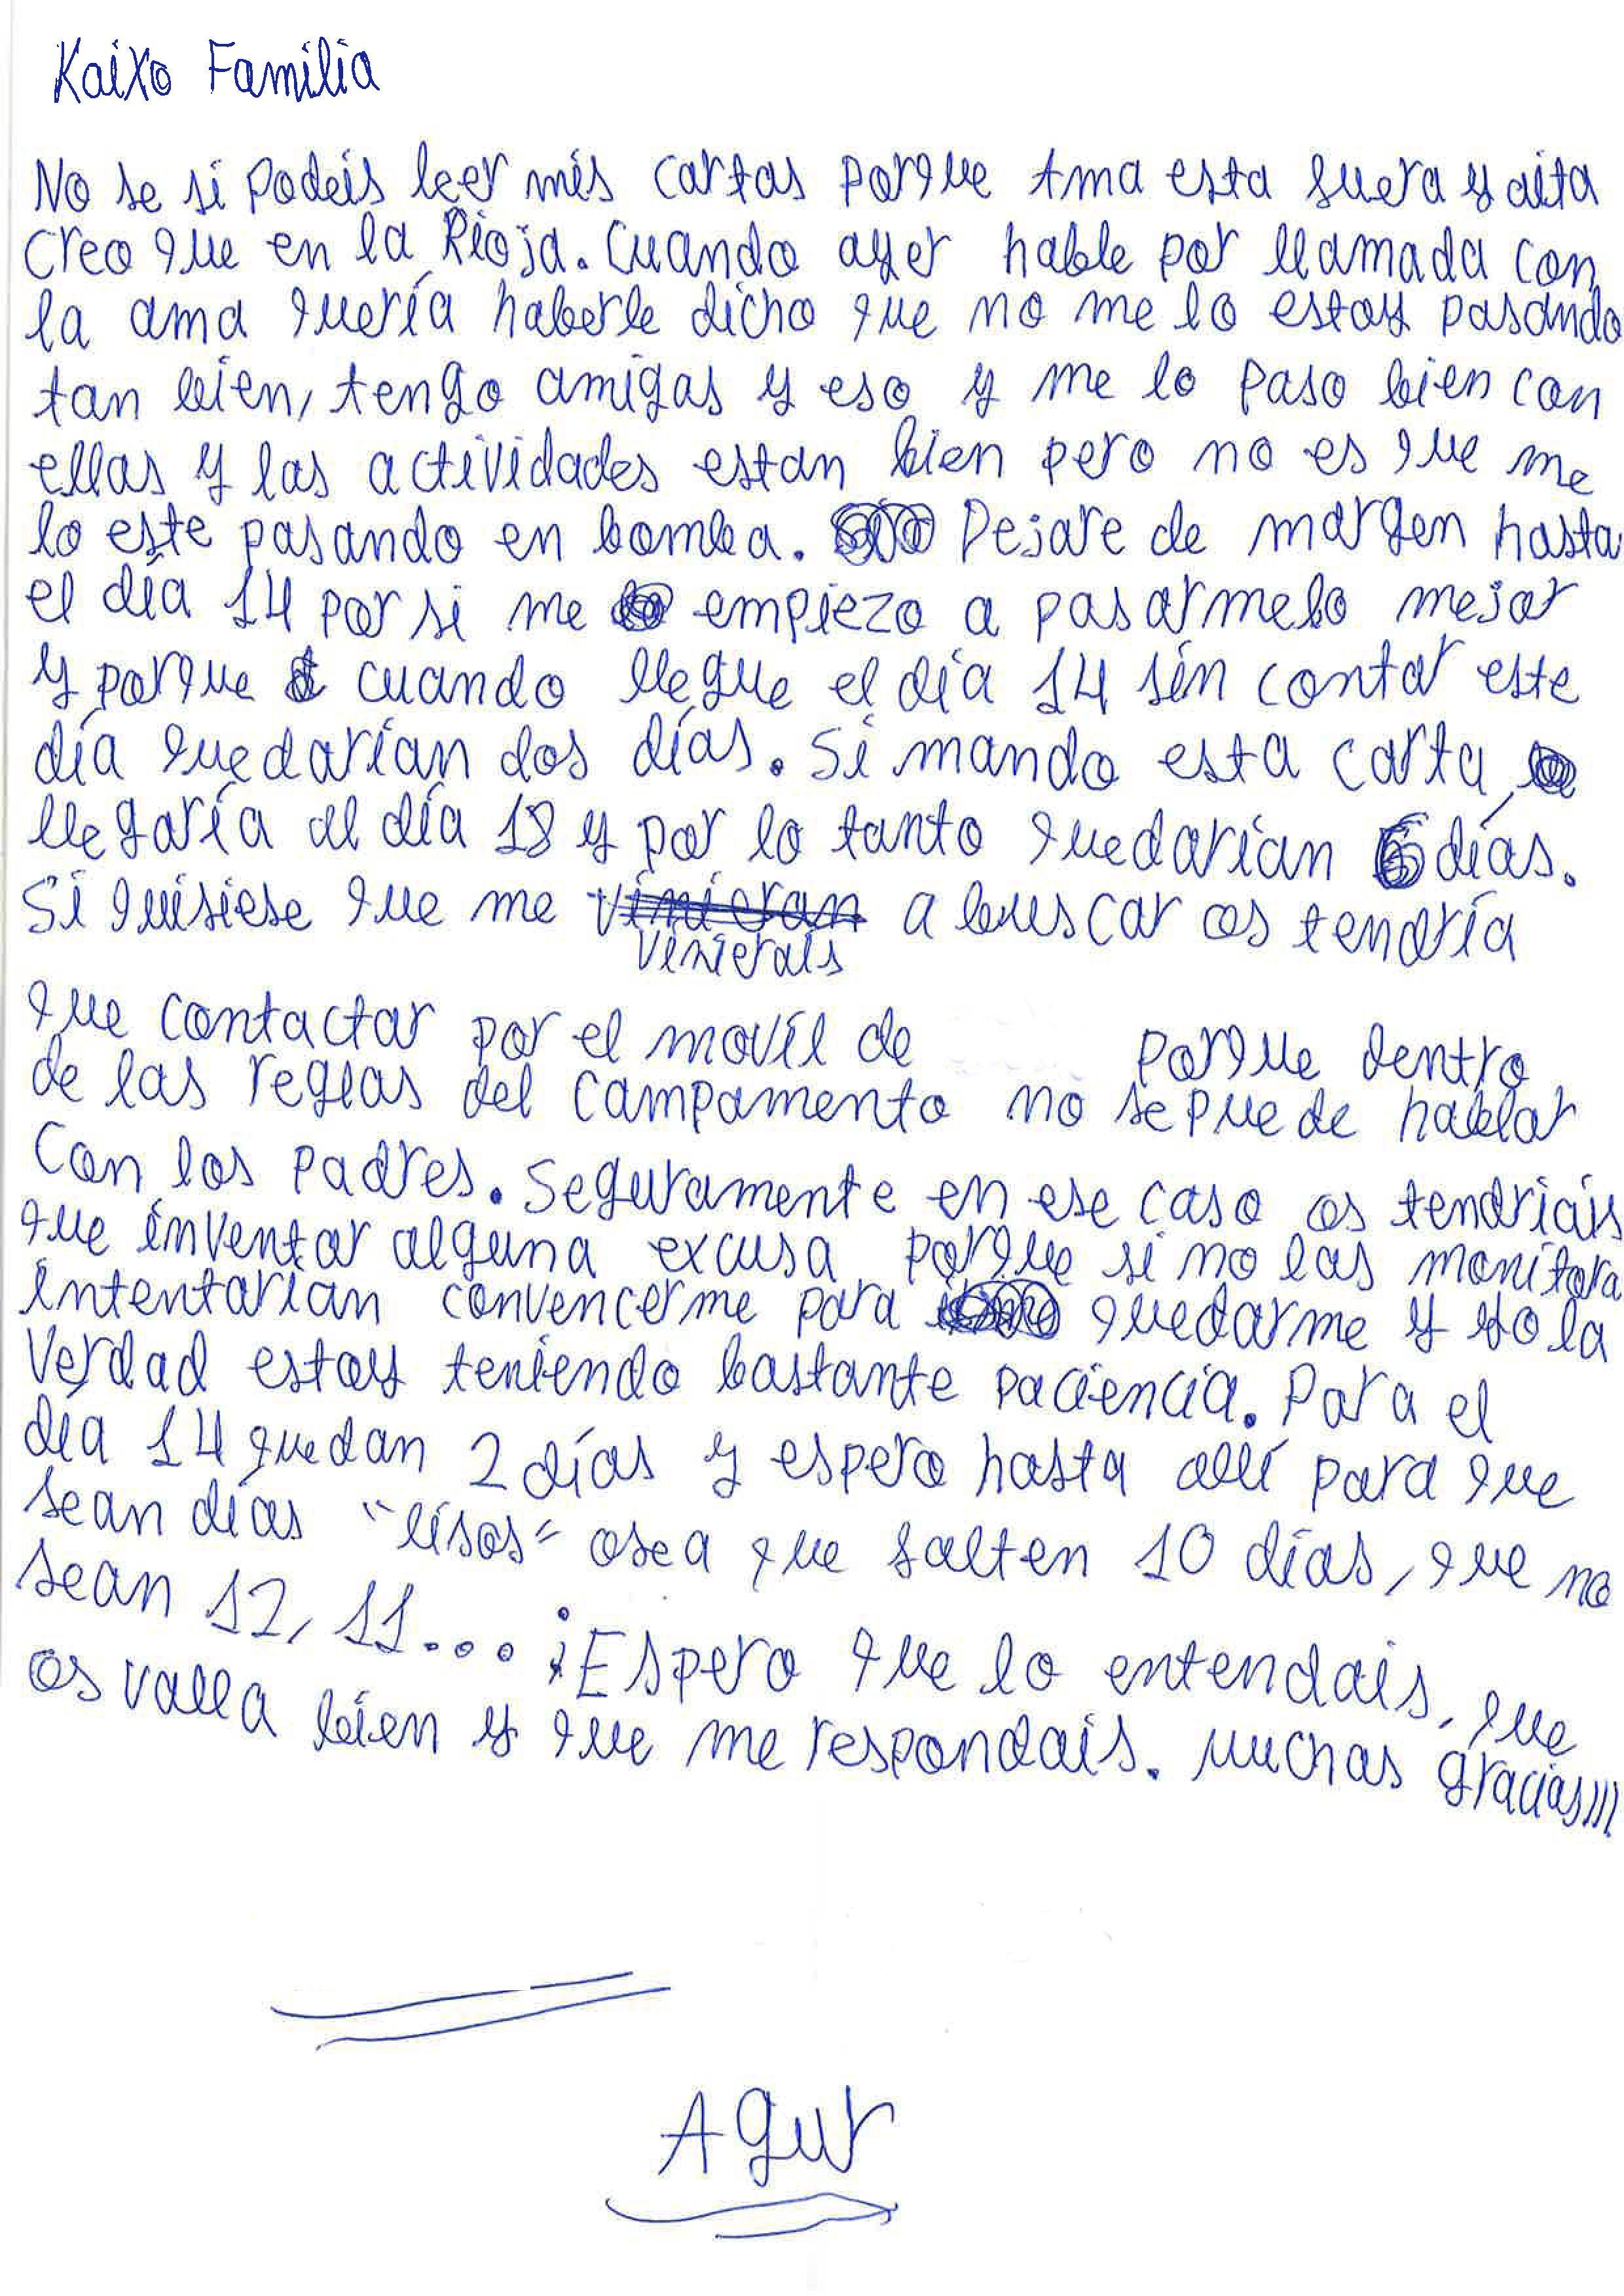 Kaixo Familia
No se si podeis leer mis cartas porque Ama esta fuera y aita
creo que en la Rioja. Cuando ayer hable por llamada con
la ama quería haberle dicho que no me lo estoy pasando
tan bien, tengo amigas y eso y me lo paso bien con
ellas y las actividades estan bien pero no es que me
lo este pasando en bomba. Dejare de margen hasta
el día 14 por si me empiezo a pasarmelo mejor
y porque cuando llegue el día 14 sin contar este
día quedarían dos días. Si mando esta carta
llegaría al día 18 y por lo tanto quedarían 6 días.
Si quisiese que me vinieran a buscar os tendría
vinierais
que contactar por el movil de porque dentro
de las reglas del campamento no se puede hablar
con los padres. Seguramente en ese caso os tendriais
que inventar alguna excusa porque si no las monitora
intentarían convencerme para quedarme y yo la
verdad estoy teniendo bastante paciencia. Para el
día 14 quedan 2 días y espero hasta allí para que
sean días "lisos" osea que falten 10 días, que no
sean 12, 11... ¡Espero que lo entendais, que
os valla bien y que me respondais. Muchas gracias!!!
Agur